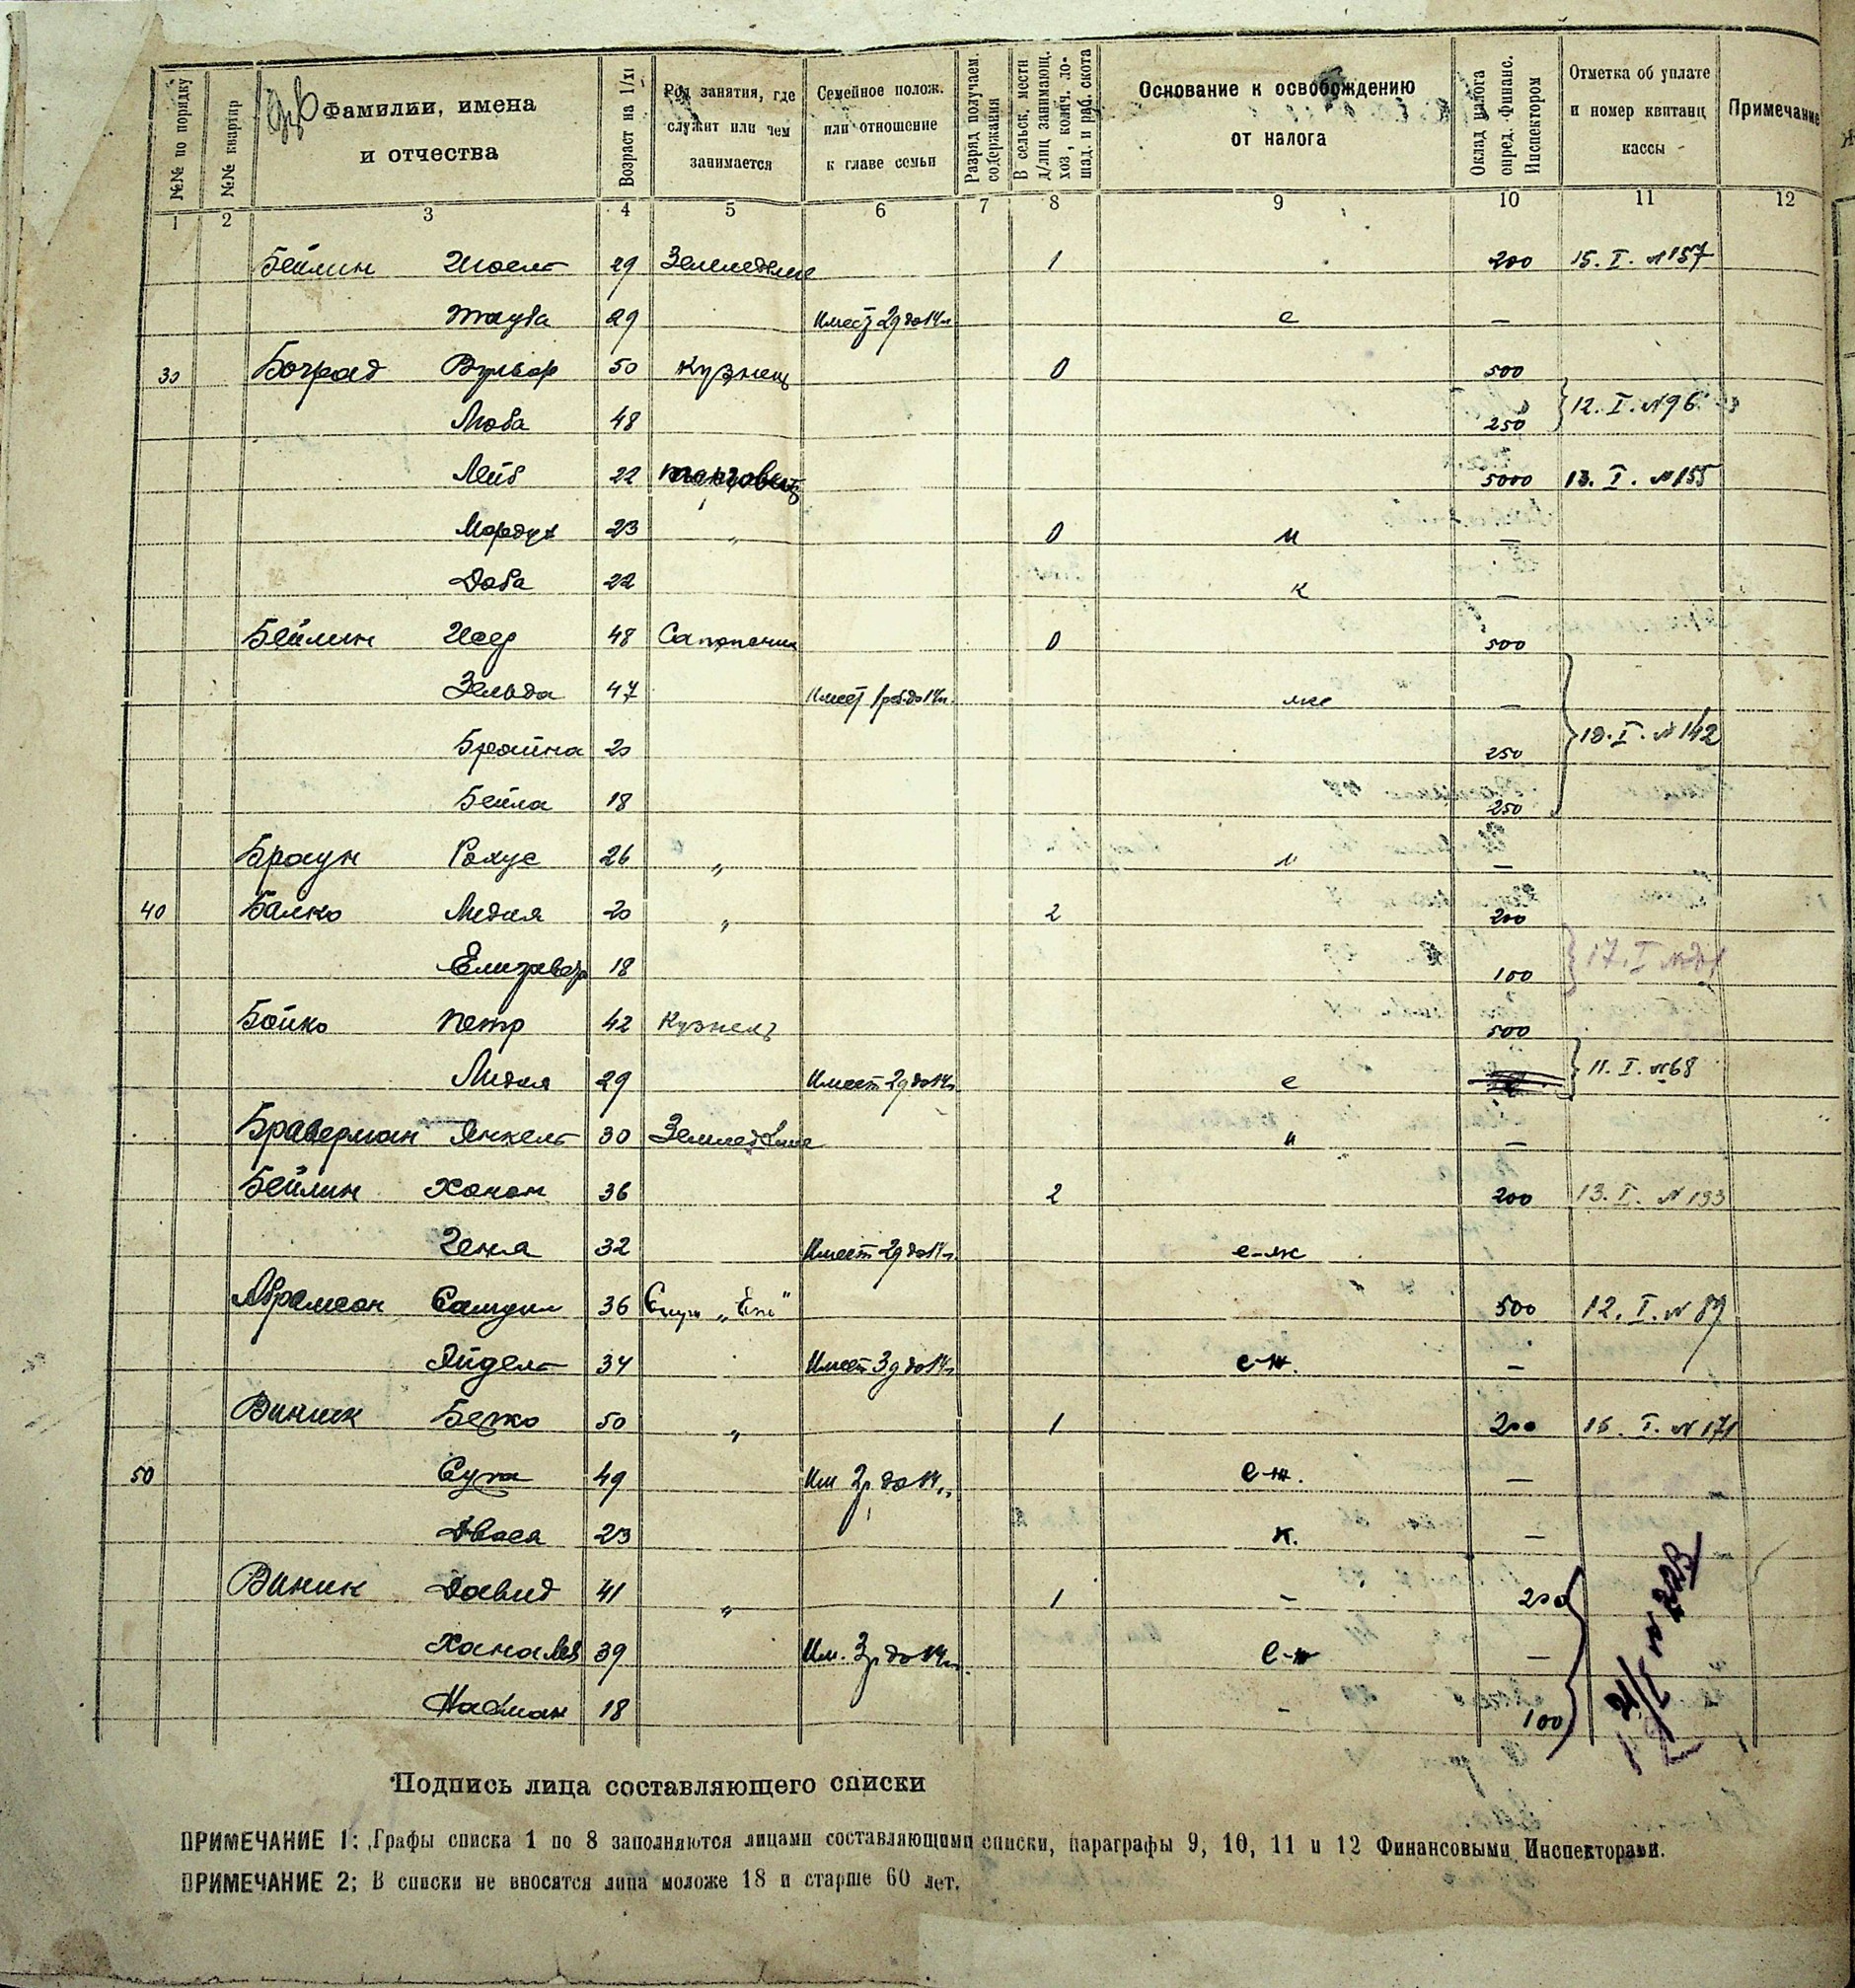 №№ по порядку
№№ квартир
Фамилии, имена
и отчества
Возраст на 1/XI
Род занятия, где
служит или чем
занимается
Семейное полож.
или отношение
к главе семьи
Разряд получаем.
содержания
В сельск. местн
д/лиц занимающ.
хоз, колич. ло-
шад. и раб. скота
Основание к освобождению
от налога
Оклад налога
опред. Финанс.
Инспектором
Отметка об уплате
и номер квитанц
кассы
Примечание
1 2 3 4 5 6 7 8 9 10 11 12
Бейлин Иоель 29 Земледелие 1 200 15. I. №157
Тауба 29 Имеет 2д до 14л е —
30 Боград Вульф 50 Кузнец 0 500
Люба 48 250 12. I. №96
Лейб 22 5000 13. I. №155
Мордух 23 " 0 н —
Доба 22 к —
Бейлин 48 Сапожник 0 500
Зельда 47 Имеет 1 реб. до 14л. —
Брайна 20 250 13. I. №142
Бейла 18 250
Браун 26 " —
40 Балко Лидия 20 " 2 200
Елизавета 18 100 17. I
Бойко Петр 42 Кузнец 500
Лидия 29 Имеет 2д до 14л е 11. I. №68
Браверман Янкель 30 Земледелие н —
Бейлин Ханан 36 2 200 13. I. №133
Геня 32 Имеет 2д до 14л. е-ж
Абрамсон Самуил 36 500 12. I. №89
Айдель 34 Имеет 3д до 14л е-ж. —
Виник Берко 50 " 1 200 16. I. №171
50 49 Им 2р до 14 е-ж. —
Двося 23 к. —
Виник Давид 41 " 1 - 200
Хана Лея 39 Им. 3р до 14л. е-ж —
Нахман 18 - 100
21/I № 223
Подпись лица составляющего списки
ПРИМЕЧАНИЕ 1: Графы списка 1 по 8 заполняются лицами составляющими списки, параграфы 9, 10, 11 и 12 Финансовыми Инспекторами.
ПРИМЕЧАНИЕ 2; В списки не вносятся лица моложе 18 и старше 60 лет.